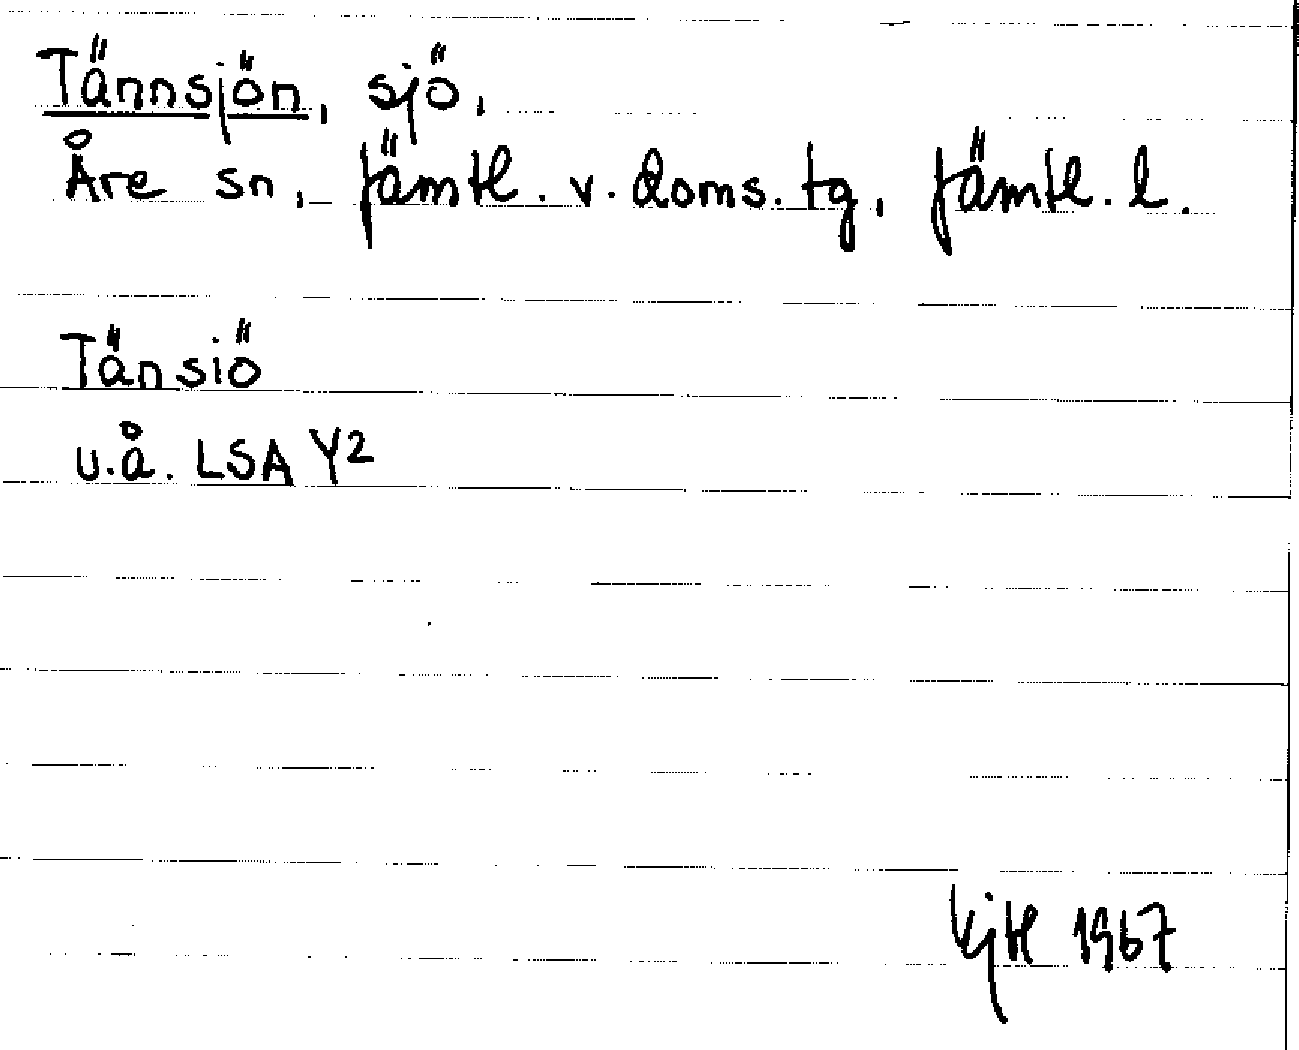 Tännsjön, sjö,
Åre sn, Jämtl. v. doms. tg, Jämtl. l.
Tänsiö
u.å. LSA Y2
1967